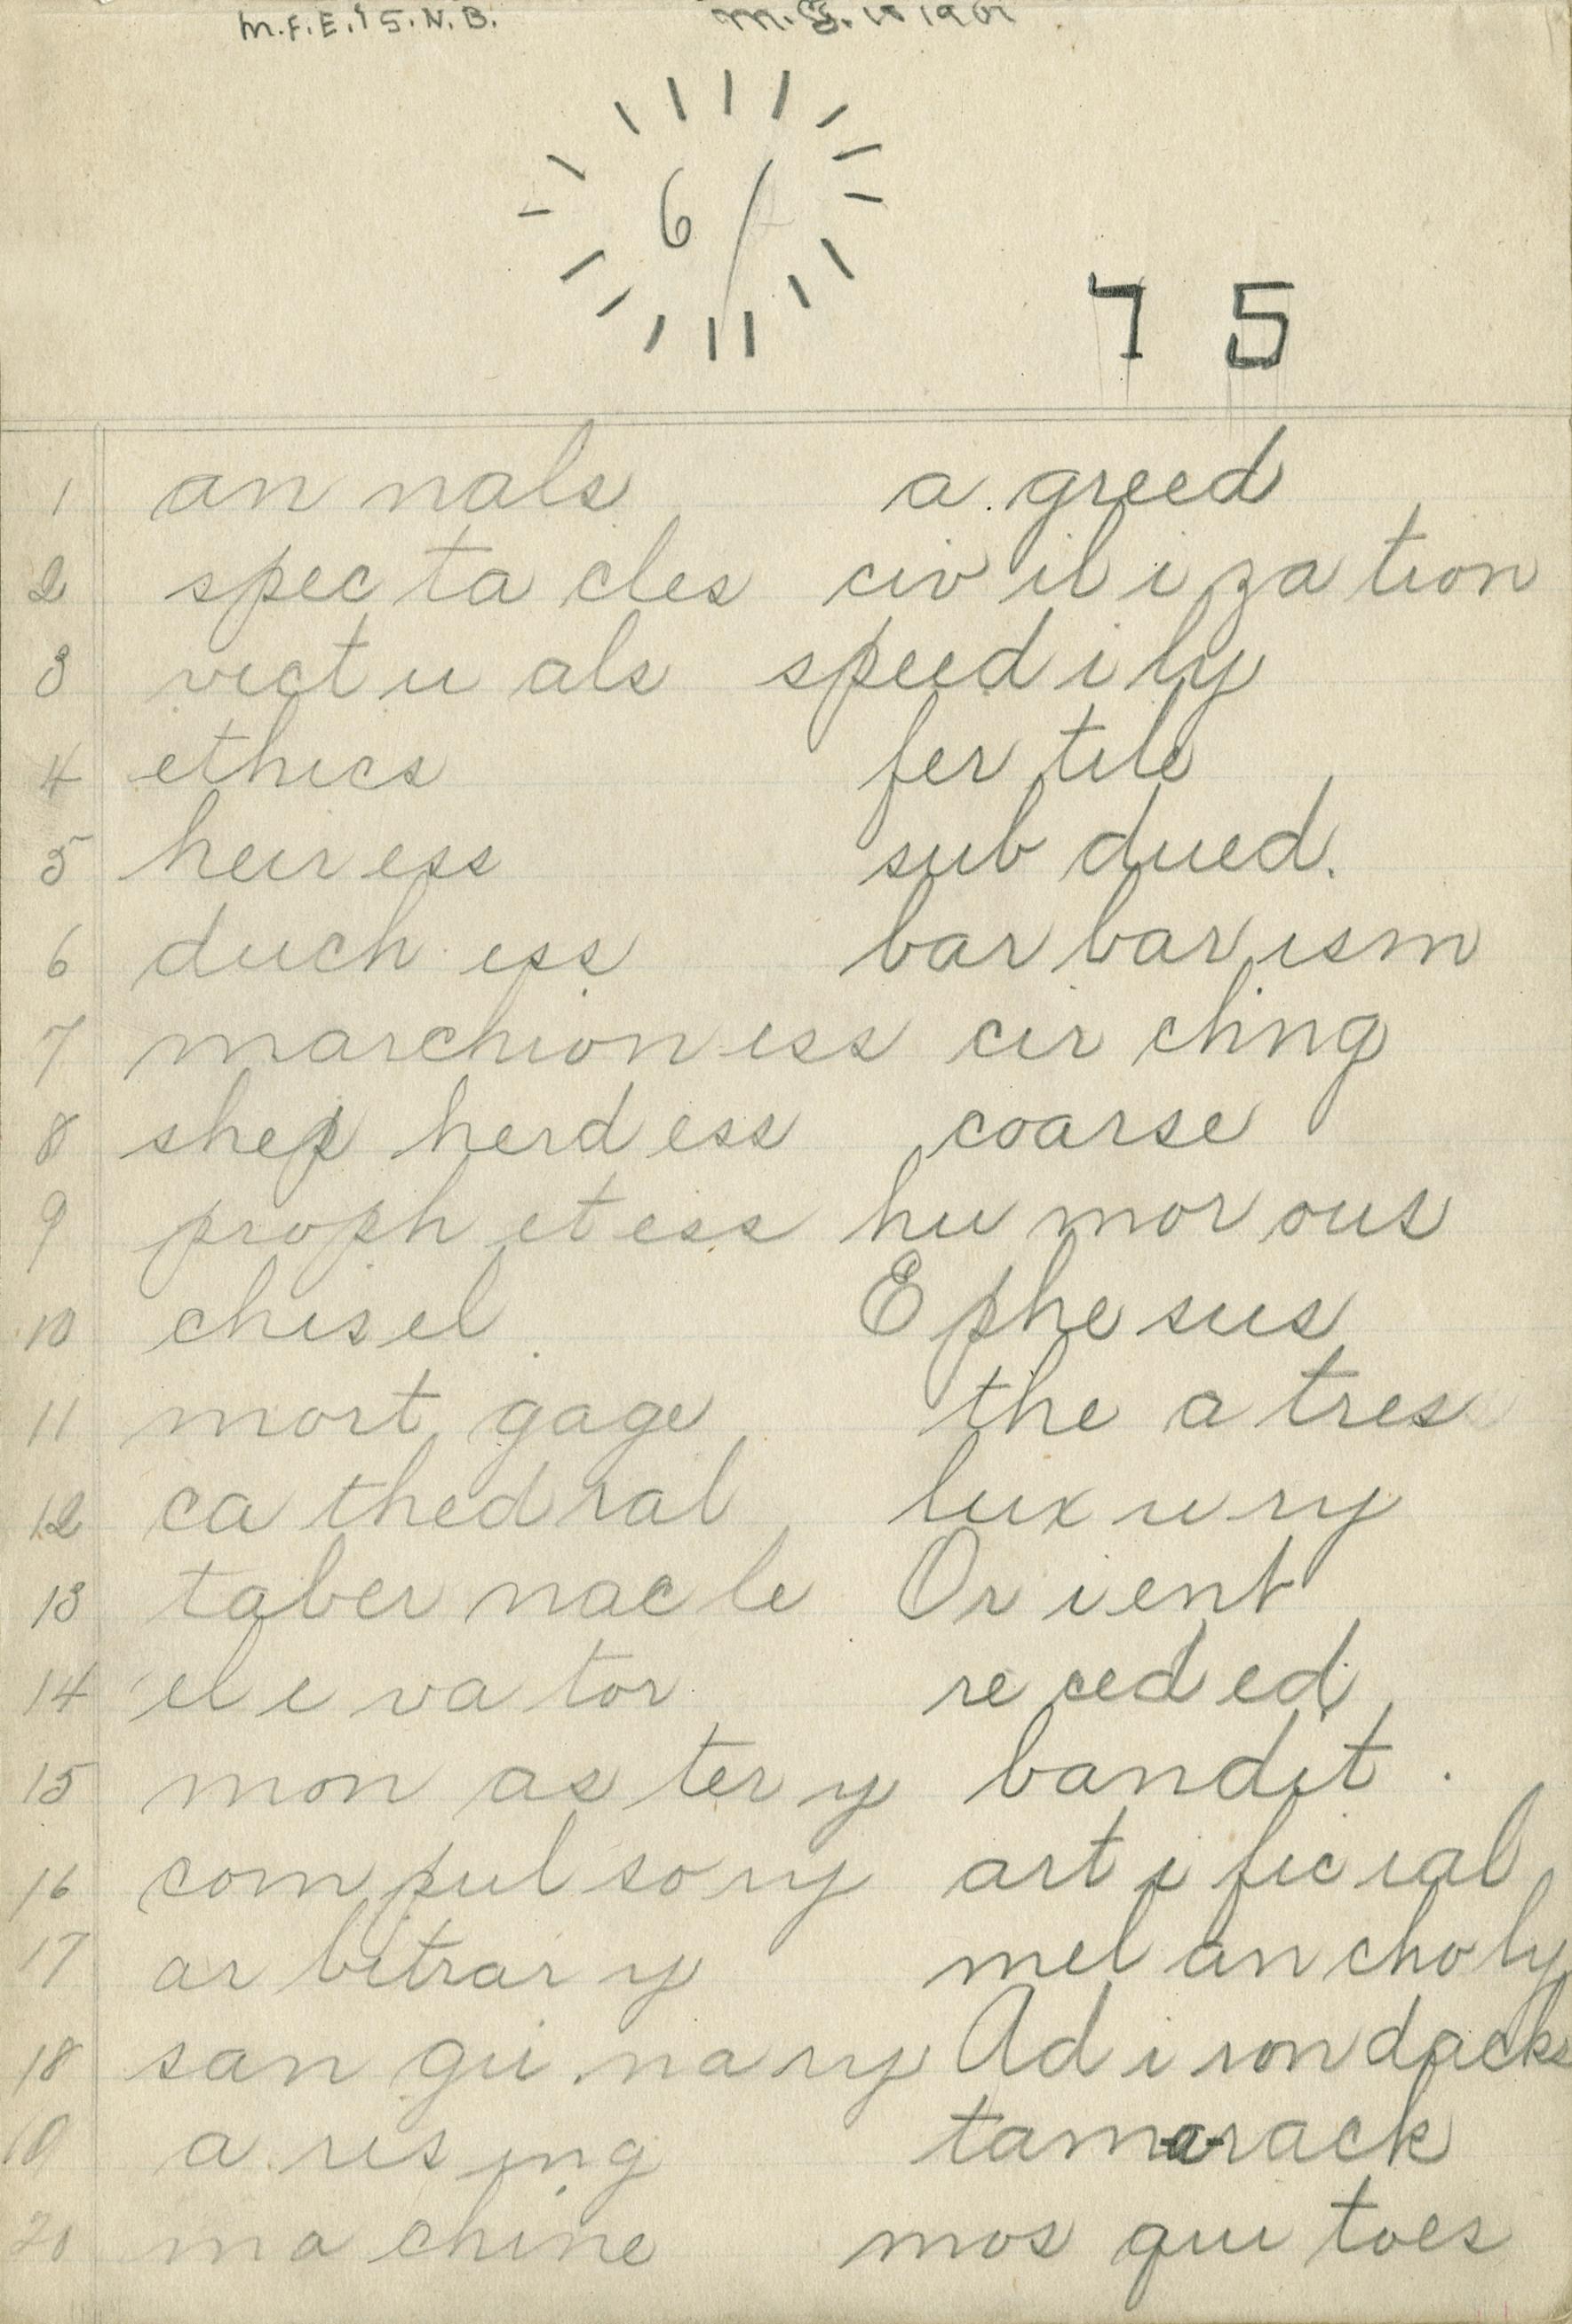 M.F.E.'S.N.B.
6
75
1 an nals a greed
2 spec ta cles civ il i za tion
3 vict u als speed i ly
4 ethics fer tile
5 heir ess sub dued.
6 duch ess bar bar ism
7 marchion ess cir cling
8 shep herd ess coarse
9 proph et ess hu mor ous
10 chis el E phe sus
11 mort gage the a tres
12 ca thed ral lux u ry
13 taber nac le Or i ent
14 el e va tor re ced ed
15 mon as ter y bandit .
16 com pul so ry art i fic ial
17 ar bitrar y mel an cho ly
18 san gui na ry Ad i ron dacks
19 a ris ing tamarack
20 ma chine mos qui toes